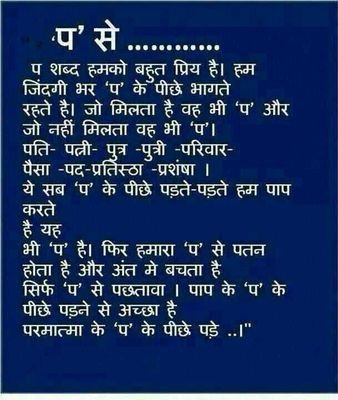 ‘प’ से ............
प शब्द हमको बहुत प्रिय है। हम
जिंदगी भर ‘प’ के पीछे भागते
रहते है। जो मिलता है वह भी ‘प’ और
जो नहीं मिलता वह भी ‘प’।
पति- पत्नी- पुत्र -पुत्री -परिवार-
पैसा -पद-प्रतिस्ठा -प्रशंषा ।
ये सब ‘प’ के पीछे पड़ते-पड़ते हम पाप
करते
है यह
भी ‘प’ है। फिर हमारा ‘प’ से पतन
होता है और अंत मे बचता है
सिर्फ ‘प’ से पछतावा । पाप के ‘प’ के
पीछे पड़ने से अच्छा है
परमात्मा के ‘प’ के पीछे पड़े ..।"